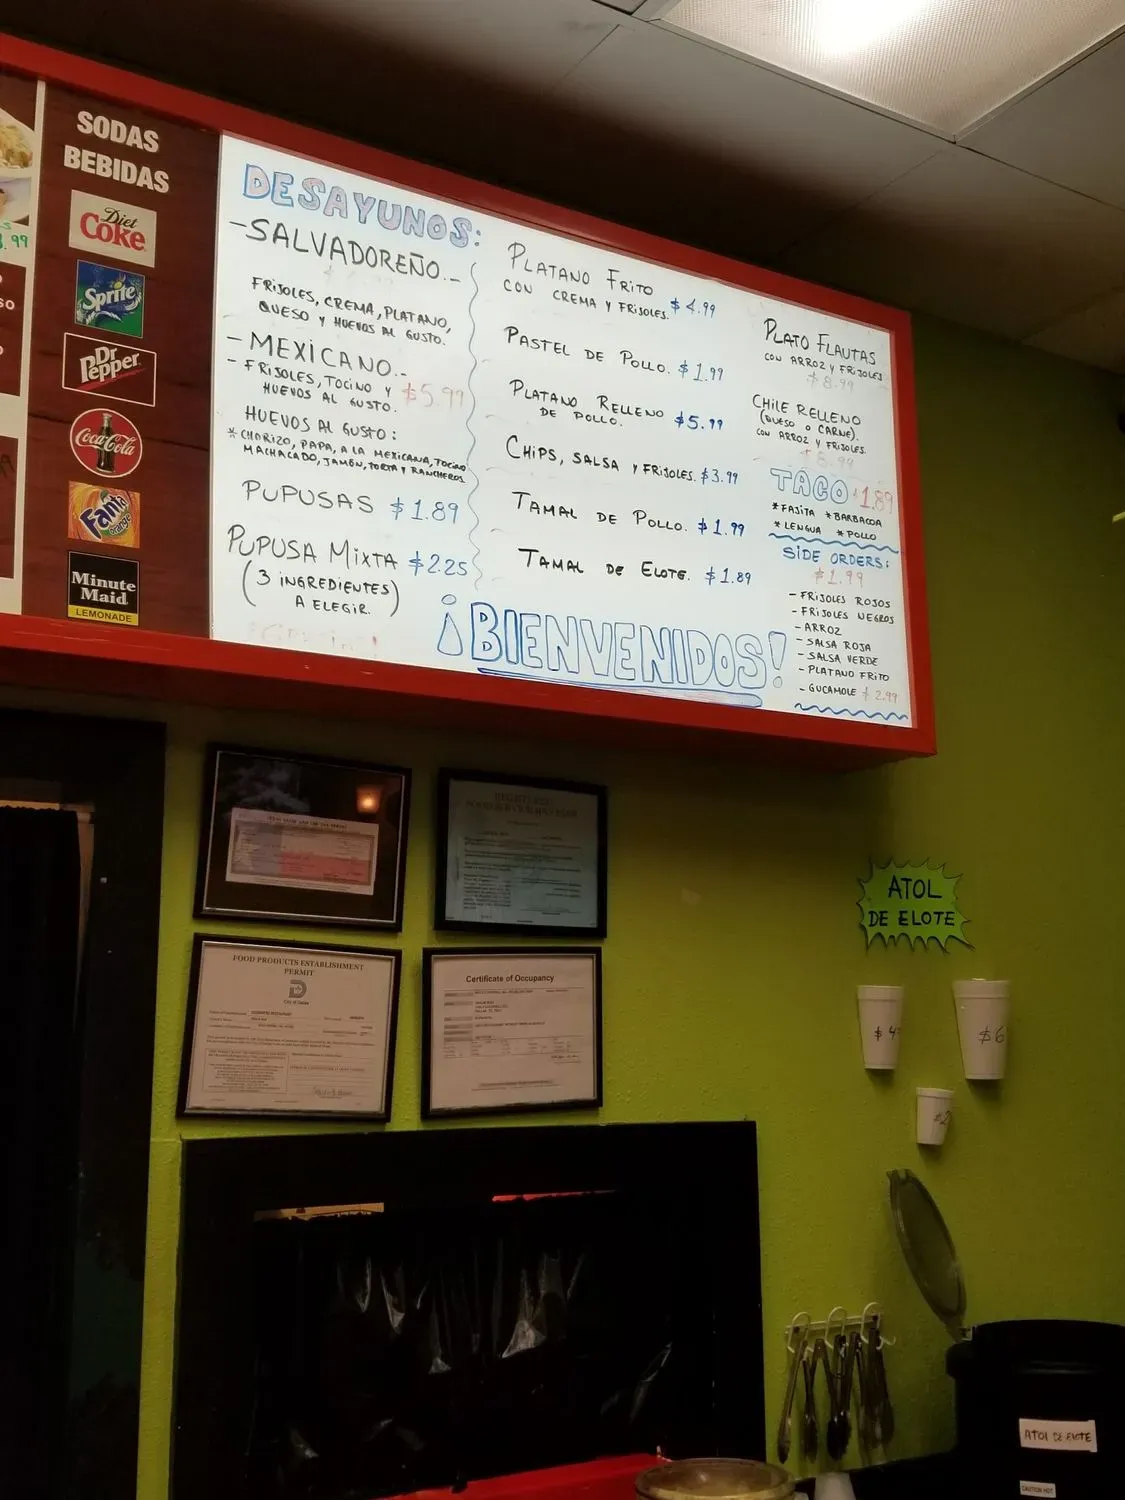 SODAS
BEBIDAS
Diet
Coke
Sprite
Dr
Pepper
Coca-Cola
Fanta
orange
Minute
Maid
LEMONADE
DESAYUNOS:
-SALVADOREÑO.-
FRIJOLES, CREMA, PLATANO,
QUESO Y HUEVOS AL GUSTO.
-MEXICANO.-
- FRIJOLES, TOCINO Y $5.99
HUEVOS AL GUSTO.
HUEVOS AL GUSTO:
* CHORIZO, PAPA, A LA MEXICANA, TOCINO
MACHACADO, JAMÓN, TORTA Y RANCHEROS
PUPUSAS $1.89
PUPUSA MIXTA $2.25
(3 INGREDIENTES)
A ELEGIR.
PLATANO FRITO
CON CREMA Y FRIJOLES. $4.99
PASTEL DE POLLO. $1.99
PLATANO RELLENO $5.99
DE POLLO.
CHIPS, SALSA Y FRIJOLES. $3.99
TAMAL DE POLLO. $1.99
TAMAL DE ELOTE. $1.89
¡BIENVENIDOS!
PLATO FLAUTAS
CON ARROZ Y FRIJOLES
$8.99
CHILE RELLENO
(QUESO O CARNE).
CON ARROZ Y FRIJOLES.
$8.99
TACO $1.89
*FAJITA *BARBACOA
*LENGUA *POLLO
SIDE ORDERS:
$1.99
- FRIJOLES ROJOS
- FRIJOLES NEGROS
- ARROZ
- SALSA ROJA
- SALSA VERDE
- PLATANO FRITO
- GUCAMOLE $2.99
FOOD PRODUCTS ESTABLISHMENT
PERMIT
City of Dallas
Certificate of Occupancy
ATOL
DE ELOTE
$4
$6
$2
ATOL DE ELOTE
CAUTION HOT